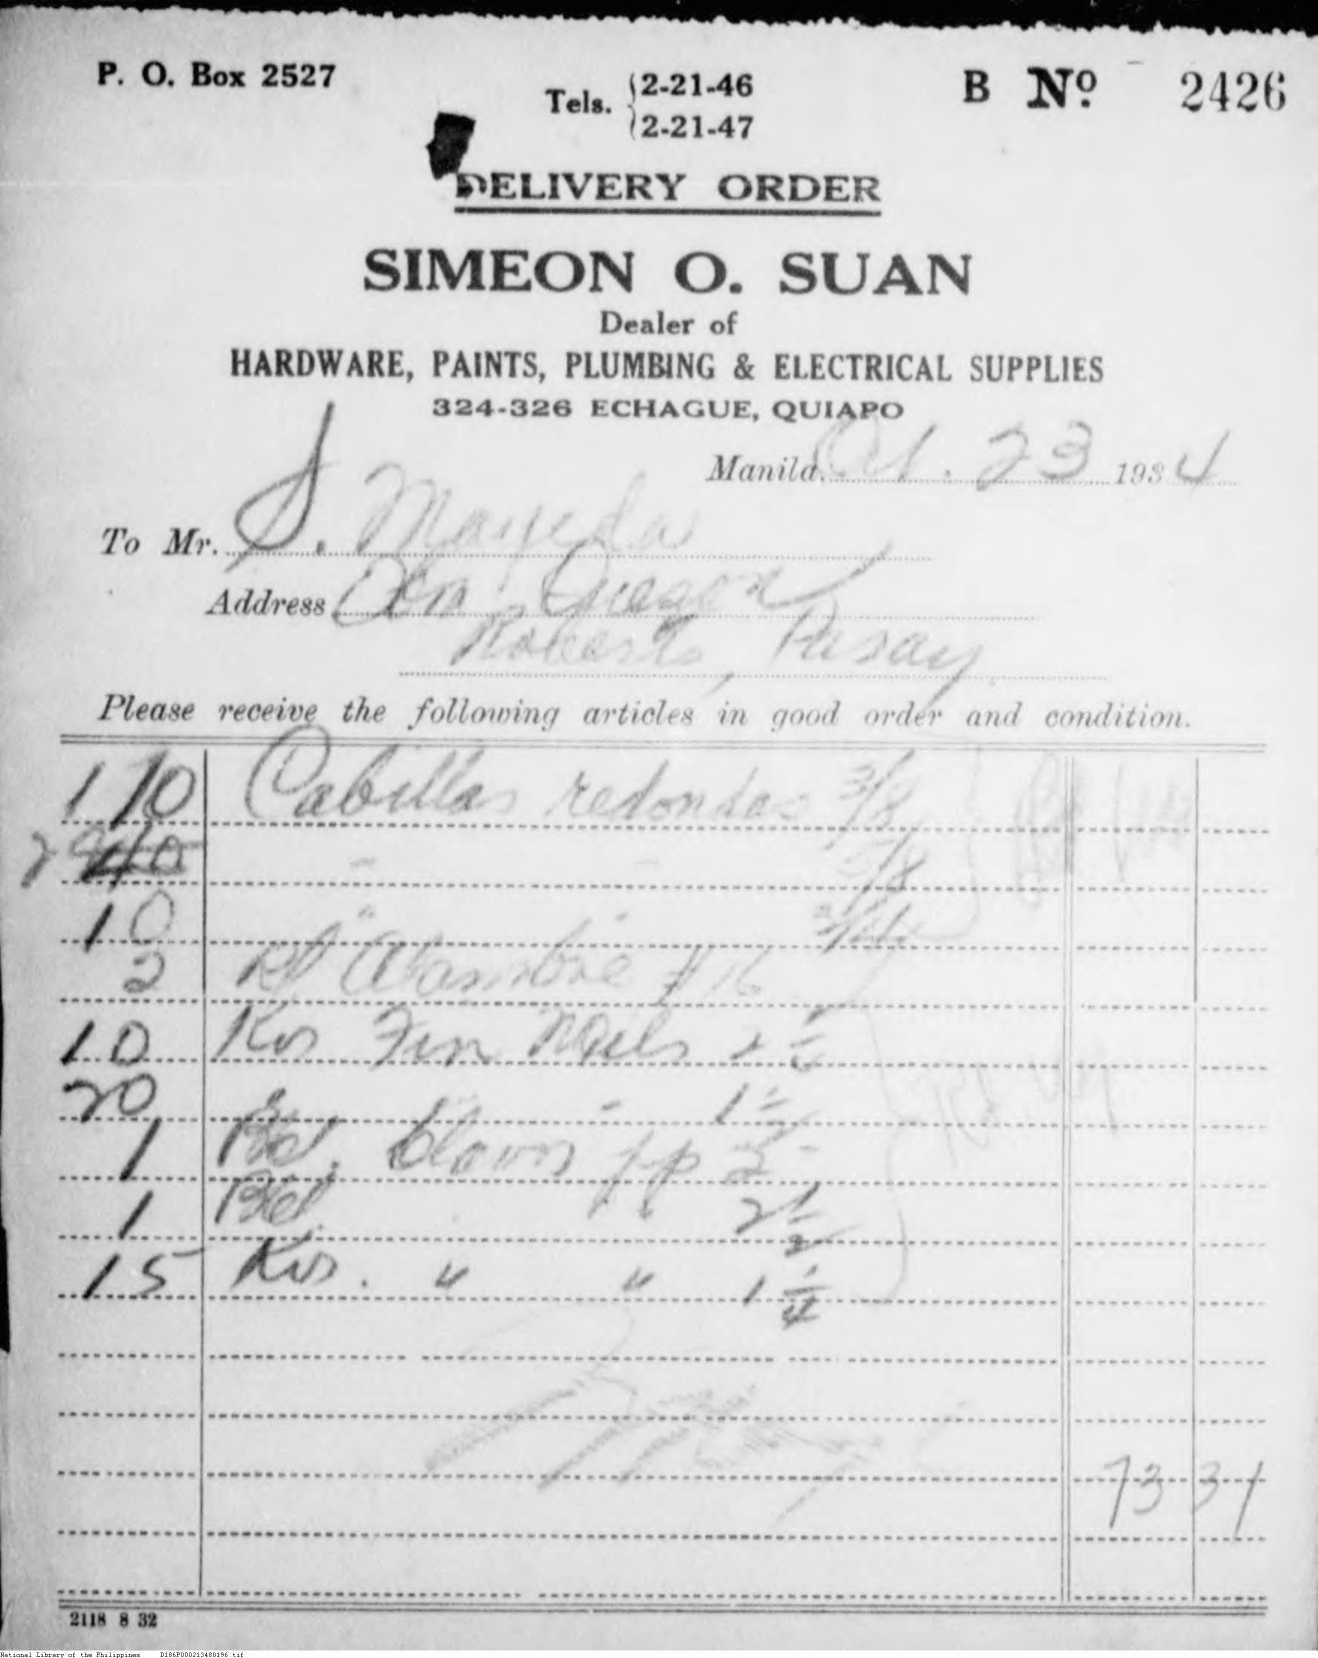 P. O. Box 2527
Tels. 2-21-46
2-21-47
B No. 2426
DELIVERY ORDER
SIMEON O. SUAN
Dealer of
HARDWARE, PAINTS, PLUMBING & ELECTRICAL SUPPLIES
324-326 ECHAGUE, QUIAPO
Manila, 23 1934
To Mr. S. Mayeda
Address
Roberts, Pasay
Please receive the following articles in good order and condition.
110 Cabillas redondas 3/8
" " 5/8
10 " " 3/4
2 Rl Alambre #16
10 Kos Fin Nails
20 " " 1
1 Bel. Clavos pp
1 Bel. 2 1/2
15 Kos. " " 1 1/4
73 31
2118 8 32
National Library of the Philippines